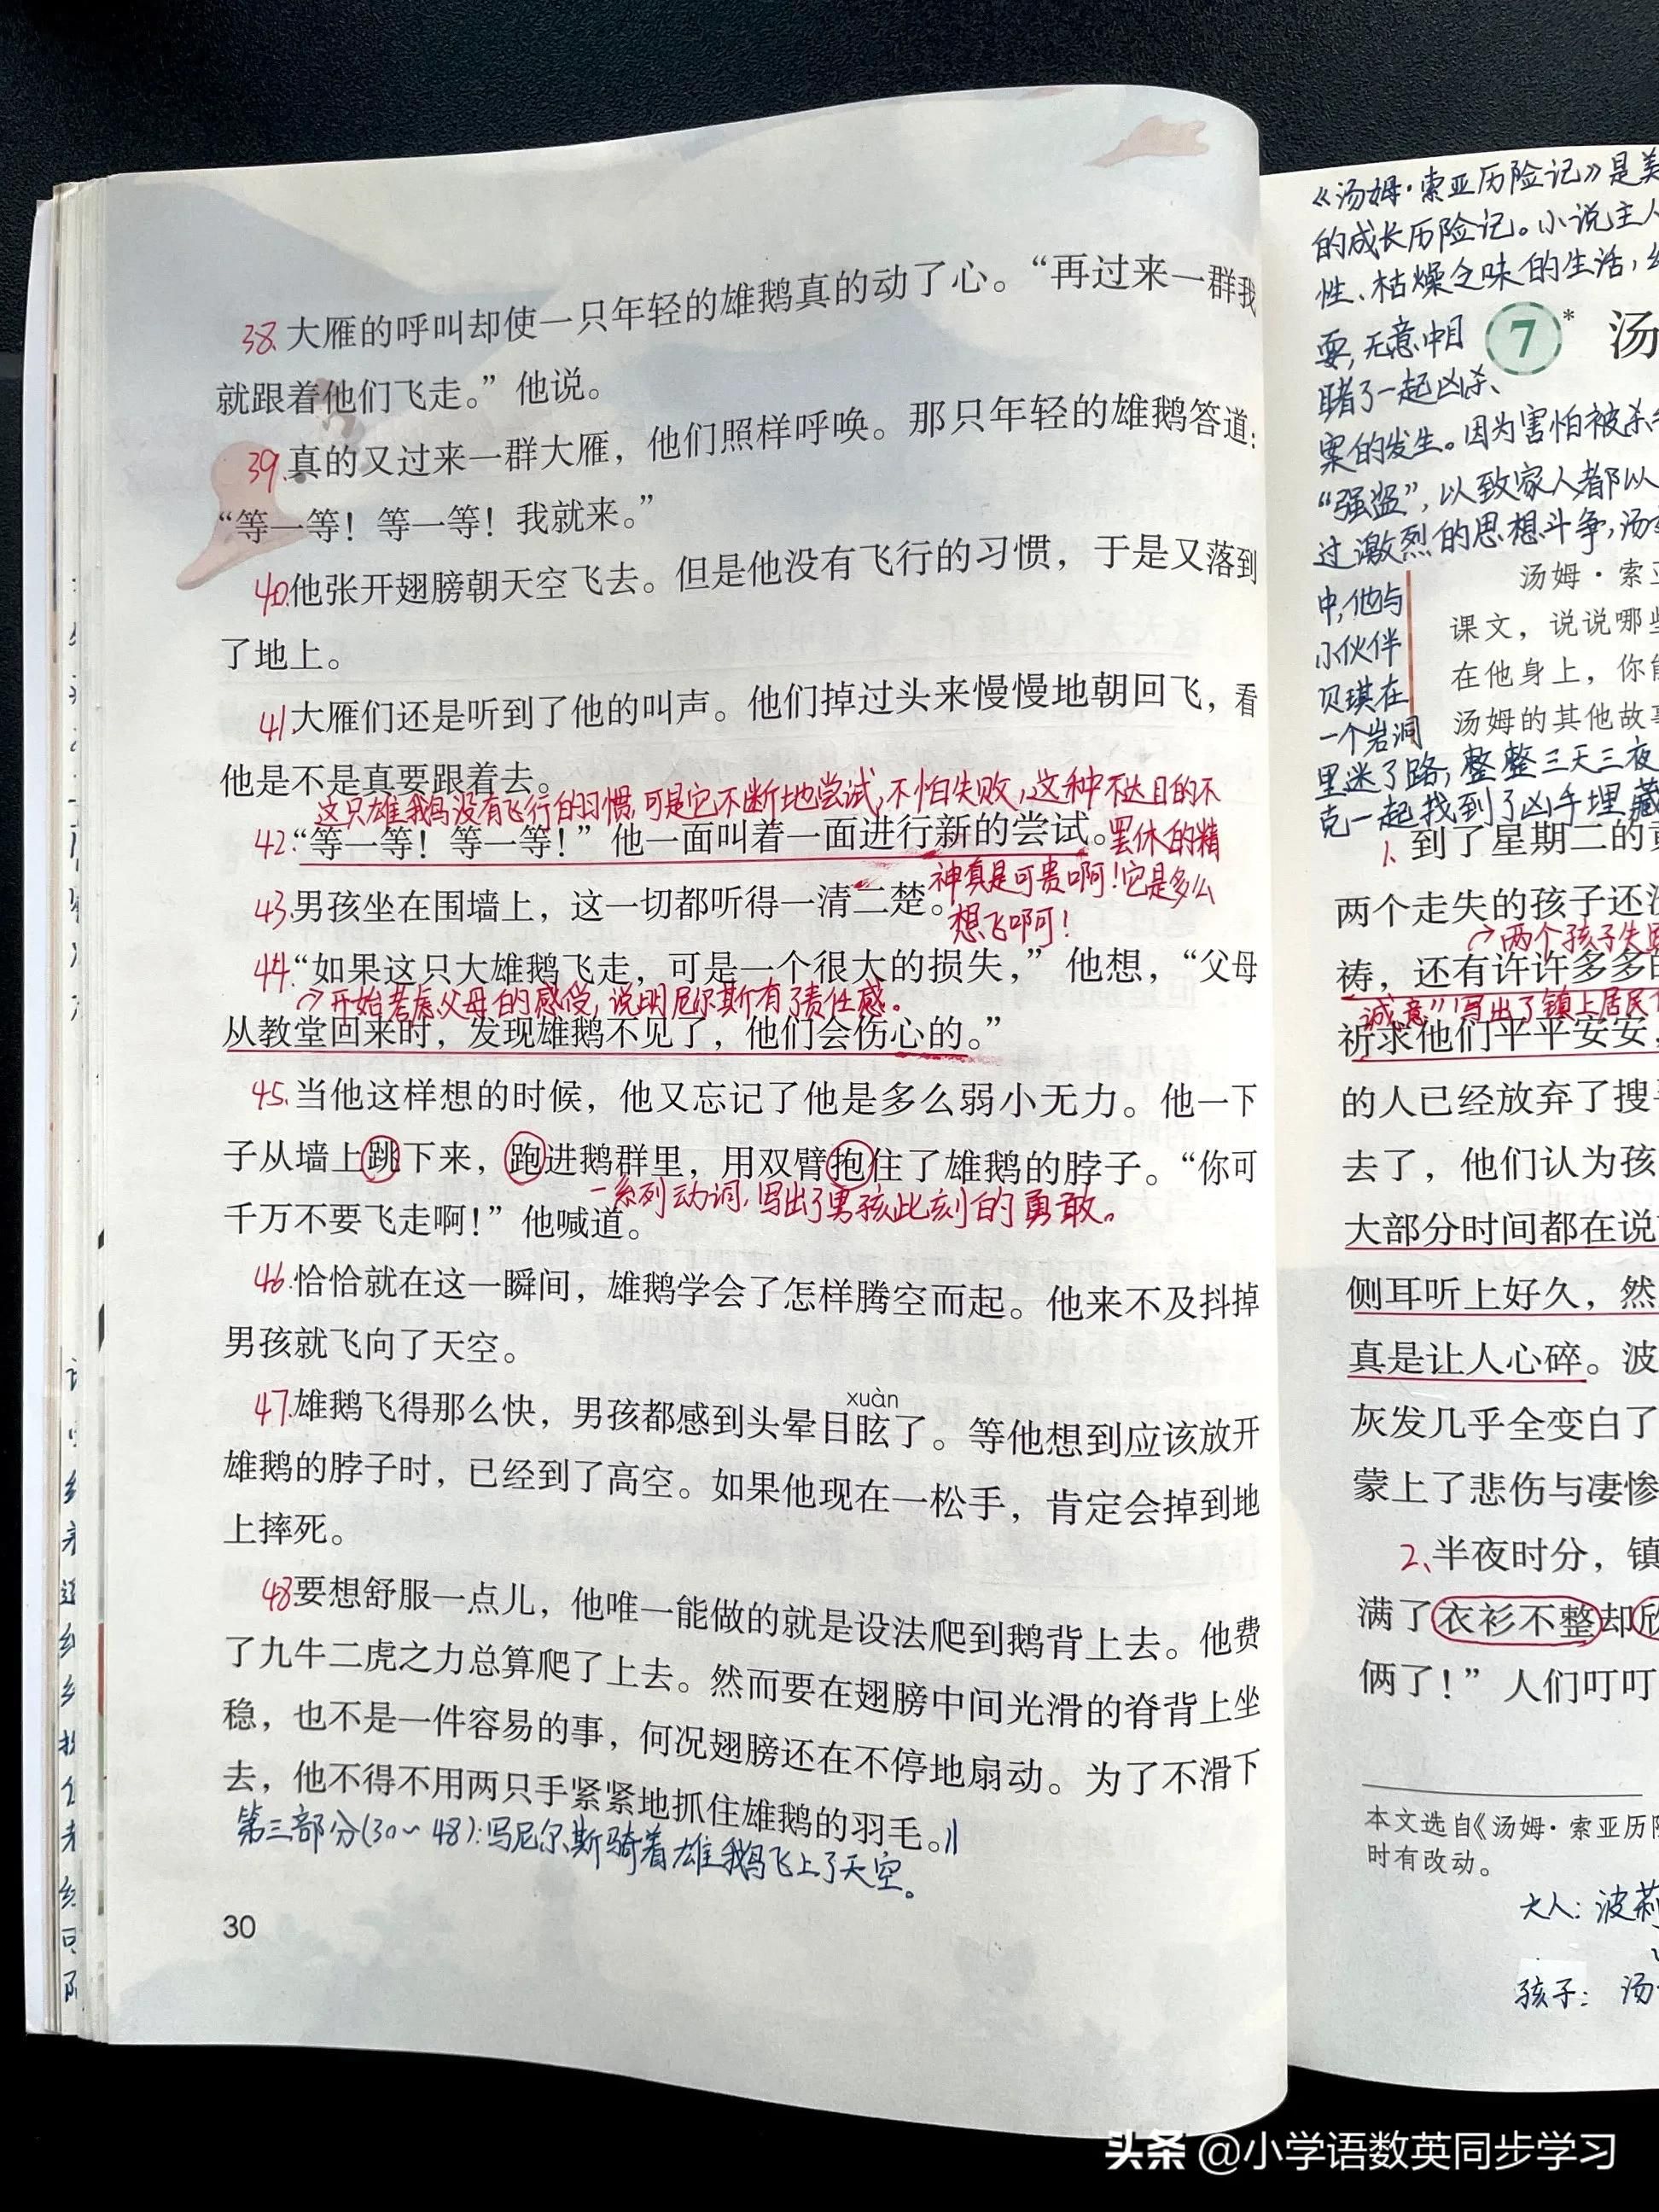 38.大雁的呼叫却使一只年轻的雄鹅真的动了心。“再过来一群我
就跟着他们飞走。”他说。
39.真的又过来一群大雁，他们照样呼唤。那只年轻的雄鹅答道：
“等一等！等一等！我就来。”
40.他张开翅膀朝天空飞去。但是他没有飞行的习惯，于是又落到
了地上。
41.大雁们还是听到了他的叫声。他们掉过头来慢慢地朝回飞，看
他是不是真要跟着去。
这只雄鹅没有飞行的习惯，可是它不断地尝试，不怕失败，这种不达目的不
42.“等一等！等一等！”他一面叫着一面进行新的尝试。罢休的精
神真是可贵啊！它是多么
43.男孩坐在围墙上，这一切都听得一清二楚。
想飞啊！
44.“如果这只大雄鹅飞走，可是一个很大的损失，”他想，“父母
开始考虑父母的感受，说明尼尔斯有了责任感。
从教堂回来时，发现雄鹅不见了，他们会伤心的。”
45.当他这样想的时候，他又忘记了他是多么弱小无力。他一下
子从墙上跳下来，跑进鹅群里，用双臂抱住了雄鹅的脖子。“你可
一系列动词，写出了男孩此刻的勇敢。
千万不要飞走啊！”他喊道。
46.恰恰就在这一瞬间，雄鹅学会了怎样腾空而起。他来不及抖掉
男孩就飞向了天空。
xuàn
47.雄鹅飞得那么快，男孩都感到头晕目眩了。等他想到应该放开
雄鹅的脖子时，已经到了高空。如果他现在一松手，肯定会掉到地
上摔死。
48要想舒服一点儿，他唯一能做的就是设法爬到鹅背上去。他费
了九牛二虎之力总算爬了上去。然而要在翅膀中间光滑的脊背上坐
稳，也不是一件容易的事，何况翅膀还在不停地扇动。为了不滑下
去，他不得不用两只手紧紧地抓住雄鹅的羽毛。
第三部分(30～48)：写尼尔斯骑着雄鹅飞上了天空。
30
《汤姆·索亚历险记》是美
的成长历险记。小说主人
性、枯燥乏味的生活，
耍，无意中目
睹了一起凶杀
案的发生。因为害怕被杀
“强盗”，以致家人都以
过激烈的思想斗争，汤
中，他与
小伙伴
贝琪在
一个岩洞
里迷了路，整整三天三夜
克一起找到了凶手埋藏
7* 汤
汤姆·索亚
课文，说说哪些
在他身上，你能
汤姆的其他故事
1.到了星期二的
两个走失的孩子还没
两个孩子失
祷，还有许许多多的
诚意”写出了镇上居民
祈求他们平平安安，
的人已经放弃了搜寻
去了，他们认为孩
大部分时间都在说
侧耳听上好久，然
真是让人心碎。波
灰发几乎全变白了
蒙上了悲伤与凄惨
2、半夜时分，镇
满了衣衫不整却欣
俩了！”人们叮叮
本文选自《汤姆·索亚历险
时有改动。
大人：波莉
孩子：汤
头条 @小学语数英同步学习